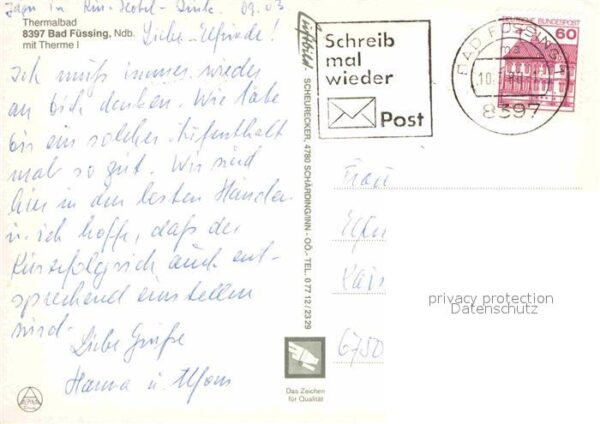 Thermalbad
8397 Bad Füssing, Ndb.
mit Therme I
Liebe Elfriede!
Ich muß immer wieder
an Dich denken. Wie täte
Dir ein solcher Aufenthalt
mal so gut. Wir sind
hier in den besten Händen
u. ich hoffe, daß der
Kurerfolg sich auch ent-
sprechend einstellen
wird.
Liebe Grüße
Hanna u. Alfons
Luftbild:
SCHEURECKER, 4780 SCHÄRDING/INN - OÖ.- TEL. 0 77 12 / 23 29
Das Zeichen
für Qualität
Schreib
mal
wieder
Post
BAD FÜSSING
8397
DEUTSCHE BUNDESPOST
60
Frau
6750
privacy protection
Datenschutz